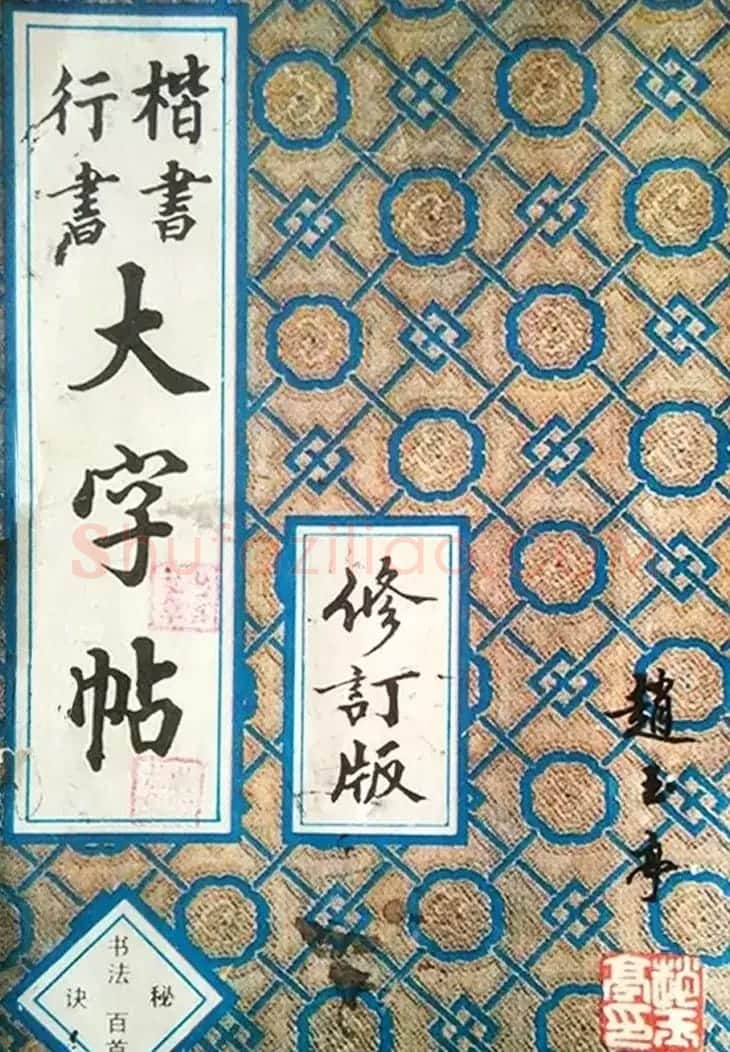 楷書
行書
大字帖
修訂版
趙玉亭
书法
秘
诀
百首
Shufaziliao.com